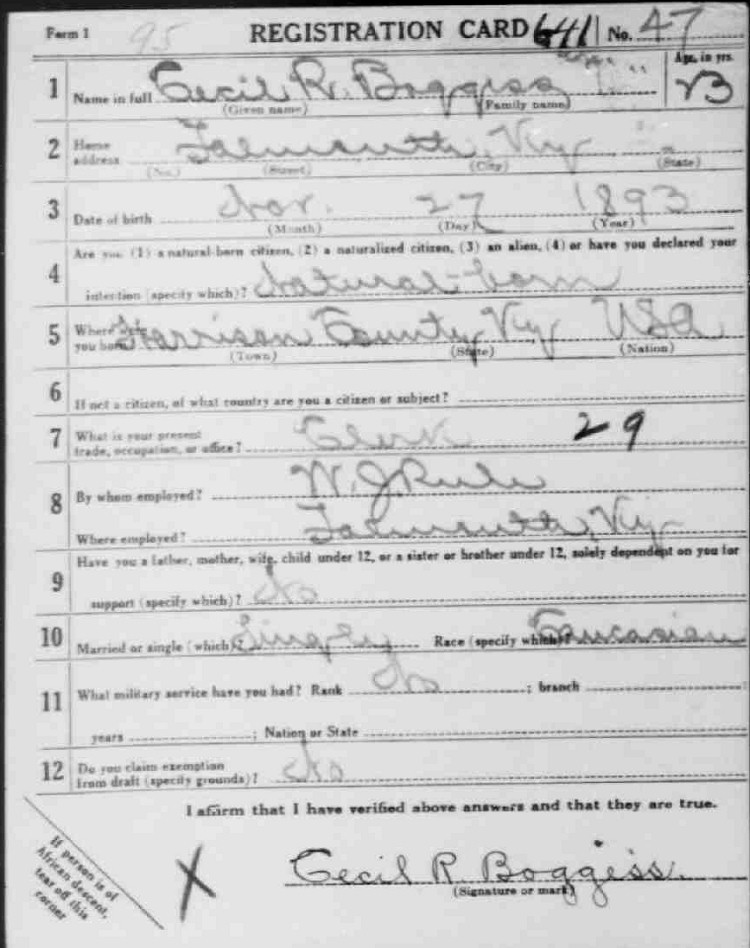 Form 1 95 REGISTRATION CARD 641 No. 47
1 Name in full Cecil R. Boggess Age, in yrs. 23
(Given name) (Family name)
2 Home address Falmouth, Ky
(No.) (Street) (City) (State)
3 Date of birth Nov. 27 1893
(Month) (Day) (Year)
Are you (1) a natural-born citizen, (2) a naturalized citizen, (3) an alien, (4) or have you declared your
4 intention (specify which)? Natural-born
5 Where were you born? Harrison County, Ky USA
(Town) (State) (Nation)
6 If not a citizen, of what country are you a citizen or subject?
7 What is your present trade, occupation, or office? Clerk 29
8 By whom employed? W. J. Rule
Where employed? Falmouth, Ky
Have you a father, mother, wife, child under 12, or a sister or brother under 12, solely dependent on you for
9 support (specify which)? No
10 Married or single (which)? Single Race (specify which)? Caucasian
11 What military service have you had? Rank No ; branch
years ; Nation or State
12 Do you claim exemption from draft (specify grounds)? No
I affirm that I have verified above answers and that they are true.
If person is of
African descent,
tear off this
corner
X Cecil R Boggess.
(Signature or mark)